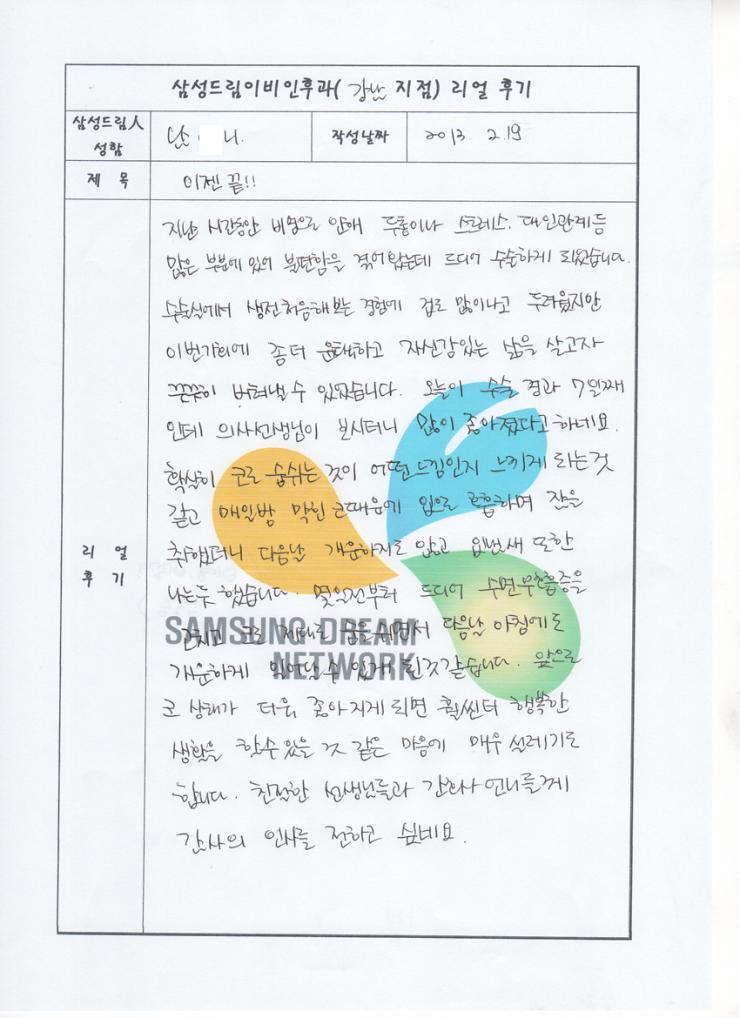 삼성드림이비인후과( 강남 지점) 리얼 후기
삼성드림人
성함
난 니.
작성날짜
2013. 2.19
제 목
이젠 끝!!
리 얼
후 기
지난 시간동안 비염으로 인해 두통이나 스트레스, 대인관계등
많은 부분에 있어 불편함을 겪어 왔는데 드디어 수술하게 되었습니다.
수술실에서 생전처음해보는 경험에 겁도 많이나고 두려웠지만
이번기회에 좀더 윤택하고 자신감있는 삶을 살고자
꿋꿋히 버텨낼 수 있었습니다. 오늘이 수술 경과 7일째
인데 의사선생님이 보시더니 많이 좋아졌다고 하네요.
확실히 코로 숨쉬는 것이 어떤느낌인지 느끼게 되는것
같고 매일밤 막힌 코때문에 입으로 호흡하며 잠을
취했더니 다음날 개운하지도 않고 입냄새 또한
나는듯 했습니다. 몇일전부터 드디어 수면무호흡증을
고치고 코로 제대로 숨을 쉬면서 다음날 아침에도
개운하게 일어날 수 있게 된것같습니다. 앞으로
코 상태가 더욱 좋아지게 되면 훨씬더 행복한
생활을 할수있을 것 같은 마음에 매우 설레기도
합니다. 친절한 선생님들과 간호사 언니들께
감사의 인사를 전하고 싶네요.
SAMSUNG DREAM
NETWORK